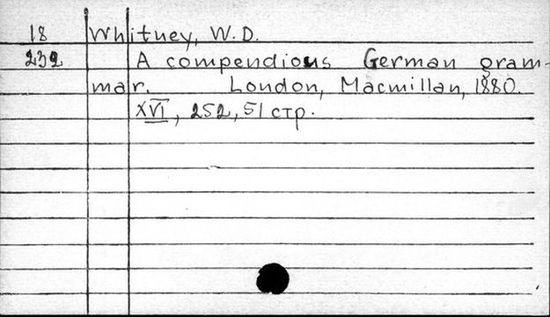 18 Whitney, W.D.
232 A compendious German gram-
mar. London, Macmillan, 1880.
XVI, 252, 51 стр.